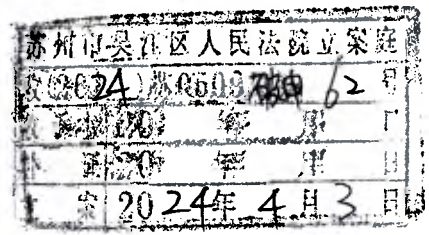 苏州市吴江区人民法院立案庭
(2024)苏0509破申62号
20 年 月 日
20 年 月 日
立案 2024年4月3日